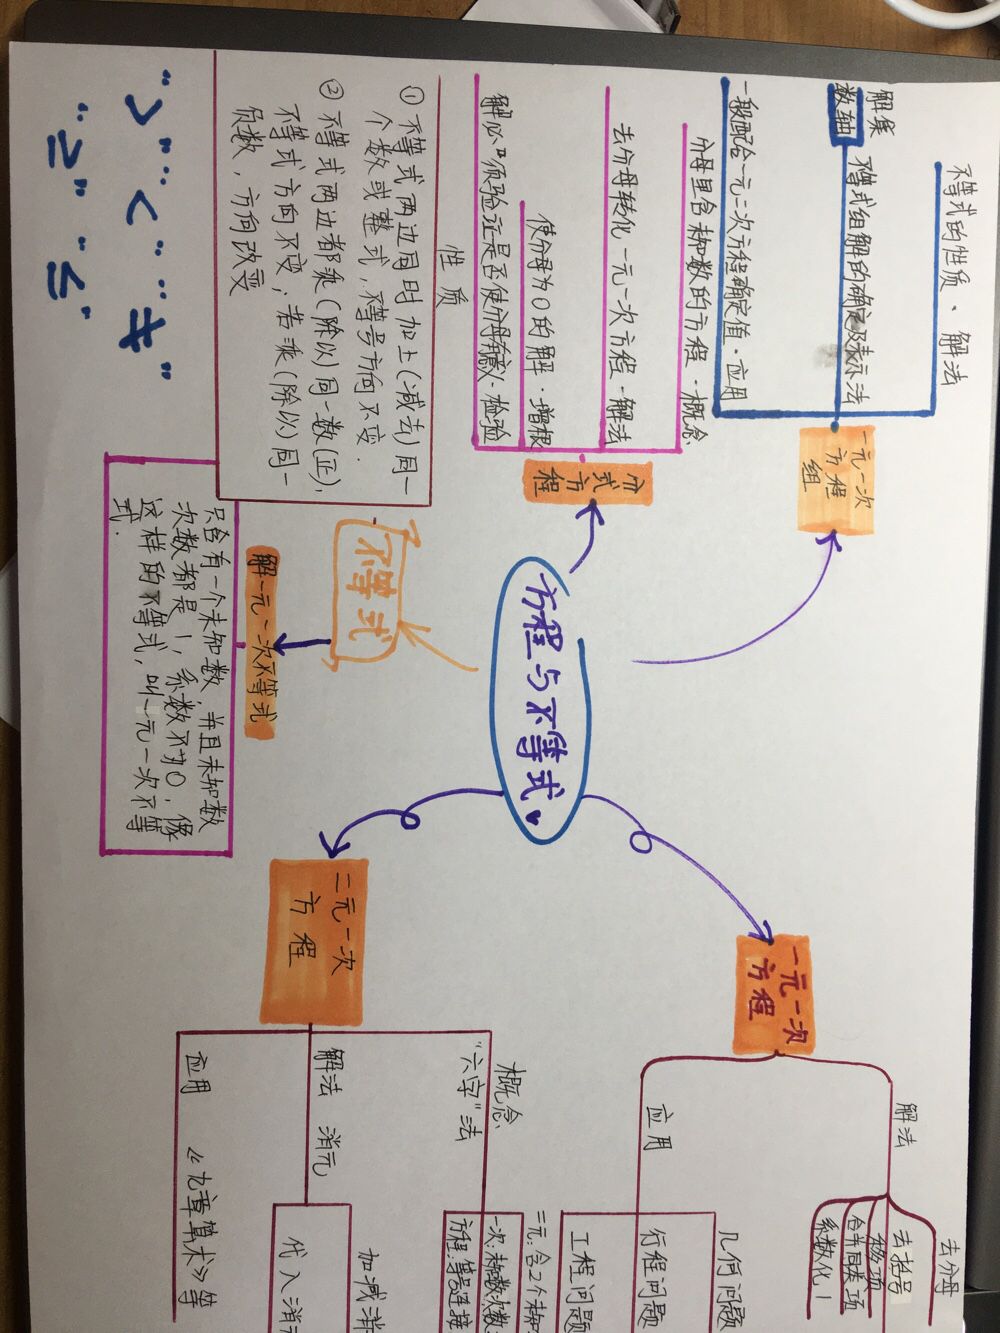 方程与不等式
一元一次
方程
解法
去分母
去括号
移项
合并同类项
系数化1
应用
几何问题
行程问题
工程问题
二元一次
方程
概念
"六字"法
二元:含2个未知
一次:未知数次数
方程:等号连接
解法 消元
加减消
代入消元
应用 《九章算术》等
一元一次
方程
组
不等式的性质、解法
解集
数轴
不等式组解的确定及表示法
一般配合一元二次方程确定值·应用
分式方
程
分母里含未知数的方程·概念
去分母转化一元一次方程·解法
使分母为0的解·增根
解必须验证是否使分母有意义·检验
不等式
性质
① 不等式两边同时加上(减去)同一
个数或整式,不等号方向不变.
② 不等式两边都乘(除以)同一数(正),
不等式方向不变,若乘(除以)同一
负数,方向改变
解一元一次不等式
只含有一个未知数,并且未知数
次数都是1,系数不为0,像
这样的不等式,叫一元一次不等
式.
">" "<" "≠"
"≥" "≤"